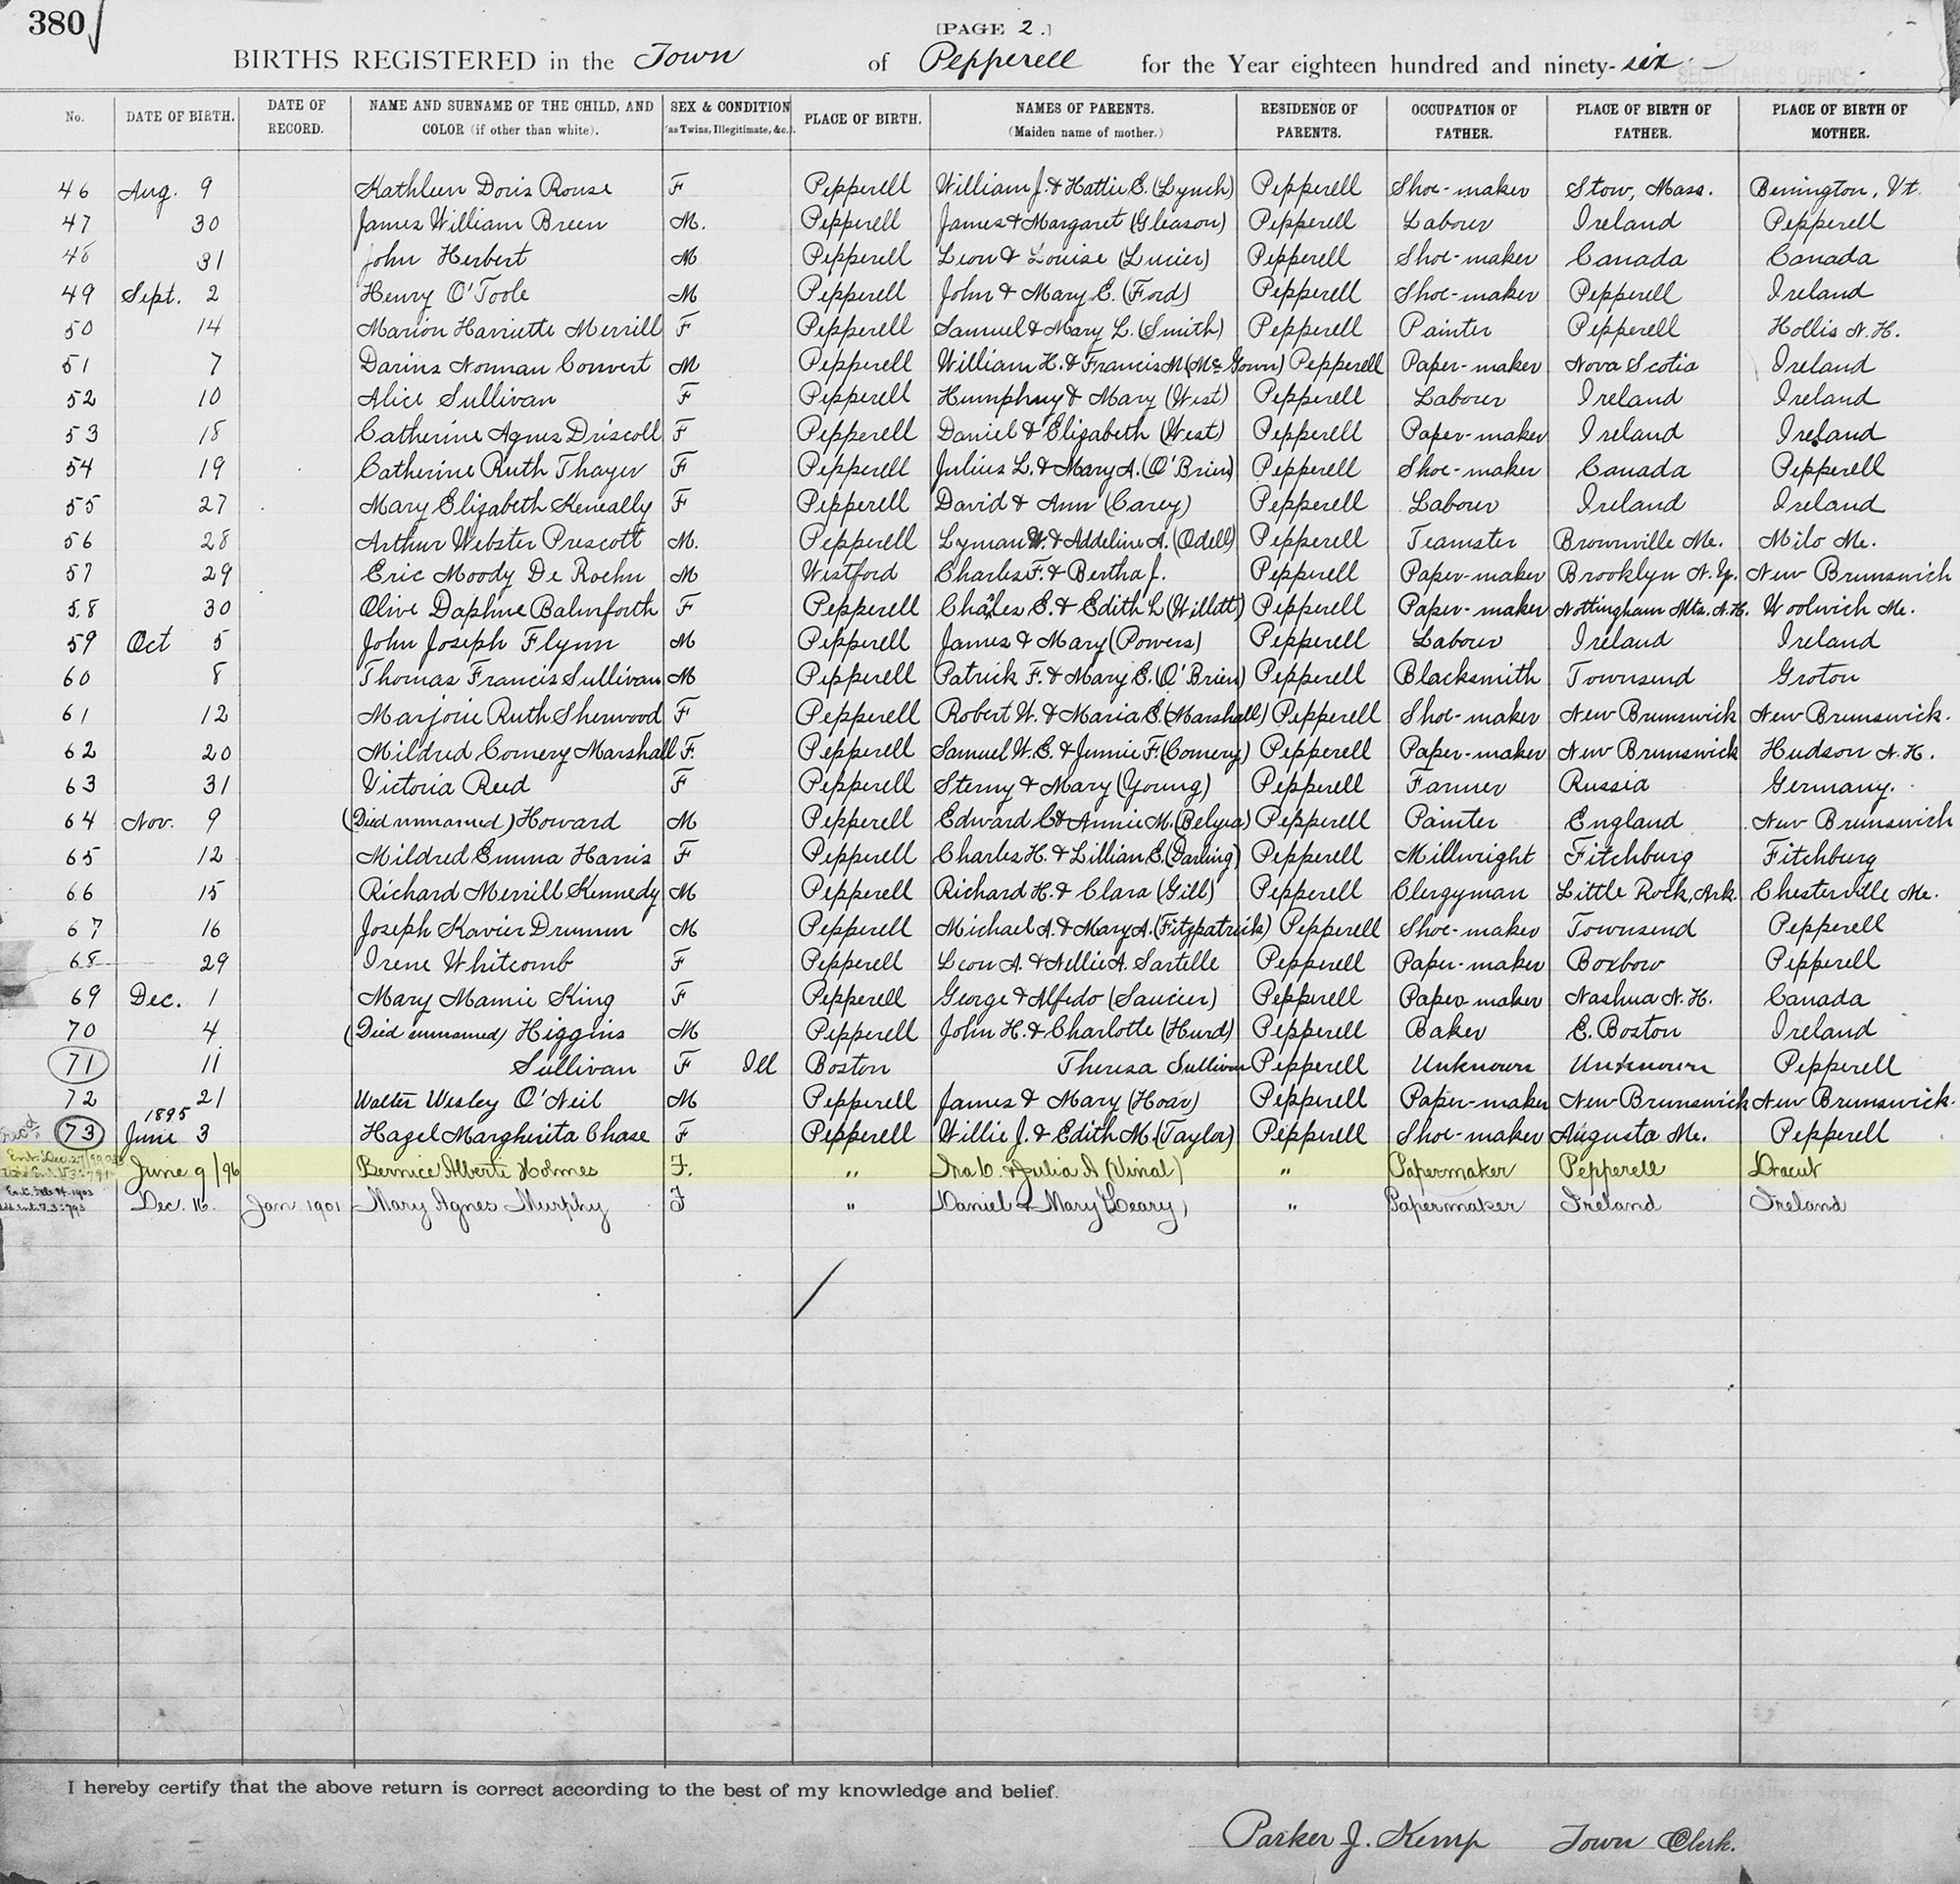 380
[PAGE 2.]
BIRTHS REGISTERED in the Town of Pepperell for the Year eighteen hundred and ninety-six
No. DATE OF BIRTH. DATE OF RECORD. NAME AND SURNAME OF THE CHILD, AND COLOR (if other than white). SEX & CONDITION (as Twins, Illegitimate, &c.). PLACE OF BIRTH. NAMES OF PARENTS. (Maiden name of mother.) RESIDENCE OF PARENTS. OCCUPATION OF FATHER. PLACE OF BIRTH OF FATHER. PLACE OF BIRTH OF MOTHER.
46 Aug. 9 Kathleen Doris Rouse F Pepperell William J. & Hattie E. (Lynch) Pepperell Shoe-maker Stow, Mass. Benington, Vt.
47 30 James William Breen M. Pepperell James & Margaret (Gleason) Pepperell Labour Ireland Pepperell
48 31 John Herbert M Pepperell Leon & Louise (Lucier) Pepperell Shoe-maker Canada Canada
49 Sept. 2 Henry O'Toole M Pepperell John & Mary E. (Ford) Pepperell Shoe-maker Pepperell Ireland
50 14 Marion Harriette Merrill F Pepperell Samuel & Mary L. (Smith) Pepperell Painter Pepperell Hollis N.H.
51 7 Darius Norman Convert M Pepperell William H. & Francis M (McGown) Pepperell Paper-maker Nova Scotia Ireland
52 10 Alice Sullivan F Pepperell Humphrey & Mary (West) Pepperell Labour Ireland Ireland
53 18 Catherine Agnes Driscoll F Pepperell Daniel & Elizabeth (West) Pepperell Paper-maker Ireland Ireland
54 19 Catherine Ruth Thayer F Pepperell Julius L. & Mary A. (O'Brien) Pepperell Shoe-maker Canada Pepperell
55 27 Mary Elizabeth Keneally F Pepperell David & Ann (Carey) Pepperell Labour Ireland Ireland
56 28 Arthur Webster Prescott M. Pepperell Lyman W. & Addeline A. (Odell) Pepperell Teamster Brownville Me. Milo Me.
57 29 Eric Moody De Roehn M Westford Charles F. & Bertha J. Pepperell Paper-maker Brooklyn N.Y. New Brunswick
58 30 Olive Daphne Balmforth F Pepperell Charles E. & Edith L (Willett) Pepperell Paper-maker Nottingham Woolwich Me.
59 Oct 5 John Joseph Flynn M Pepperell James & Mary (Powers) Pepperell Labour Ireland Ireland
60 8 Thomas Francis Sullivan M Pepperell Patrick F. & Mary E. (O'Brien) Pepperell Blacksmith Townsend Groton
61 12 Marjorie Ruth Sherwood F Pepperell Robert W. & Maria E. (Marshall) Pepperell Shoe-maker New Brunswick New Brunswick.
62 20 Mildred Comery Marshall F. Pepperell Samuel W. E. & Jennie F. (Comery) Pepperell Paper-maker New Brunswick Hudson N.H.
63 31 Victoria Reed F Pepperell & Mary (Young) Pepperell Farmer Russia Germany.
64 Nov. 9 (Died unnamed) Howard M Pepperell Edward C & Annie M. (Belyea) Pepperell Painter England New Brunswick
65 12 Mildred Emma Harris F Pepperell Charles H. & Lillian E. (Darling) Pepperell Millwright Fitchburg Fitchburg
66 15 Richard Merrill Kennedy M Pepperell Richard H. & Clara (Gill) Pepperell Clergyman Little Rock, Ark. Chesterville Me.
67 16 Joseph Xavier Drumm M Pepperell Michael A. & Mary A. (Fitzpatrick) Pepperell Shoe-maker Townsend Pepperell
68 29 Irene Whitcomb F Pepperell Leon A. & Nellie A. Sartelle Pepperell Paper-maker Boxboro Pepperell
69 Dec. 1 Mary Mamie King F Pepperell George & Alfedo (Saucier) Pepperell Paper-maker Nashua N.H. Canada
70 4 (Died unnamed) Higgins M Pepperell John H. & Charlotte (Hurd) Pepperell Baker E. Boston Ireland
71 11 Sullivan F Ill Boston Theresa Sullivan Pepperell Unknown Unknown Pepperell
72 21 Walter Wesley O'Neil M Pepperell James & Mary (Hoar) Pepperell Paper-maker New Brunswick New Brunswick.
73 1895 June 3 Hazel Margherita Chase F Pepperell Willie J. & Edith M. (Taylor) Pepperell Shoe-maker Augusta Me. Pepperell
June 9/96 Bernice Alberte Holmes F. " Ira C. & Julia A (Vinal) " Papermaker Pepperell Dracut
Ent. Feb 4. 1903 Dec. 16. Jan. 1901 Mary Agnes Murphy F " Daniel & Mary (Leary) " Papermaker Ireland Ireland
I hereby certify that the above return is correct according to the best of my knowledge and belief.
Parker J. Kemp Town Clerk.